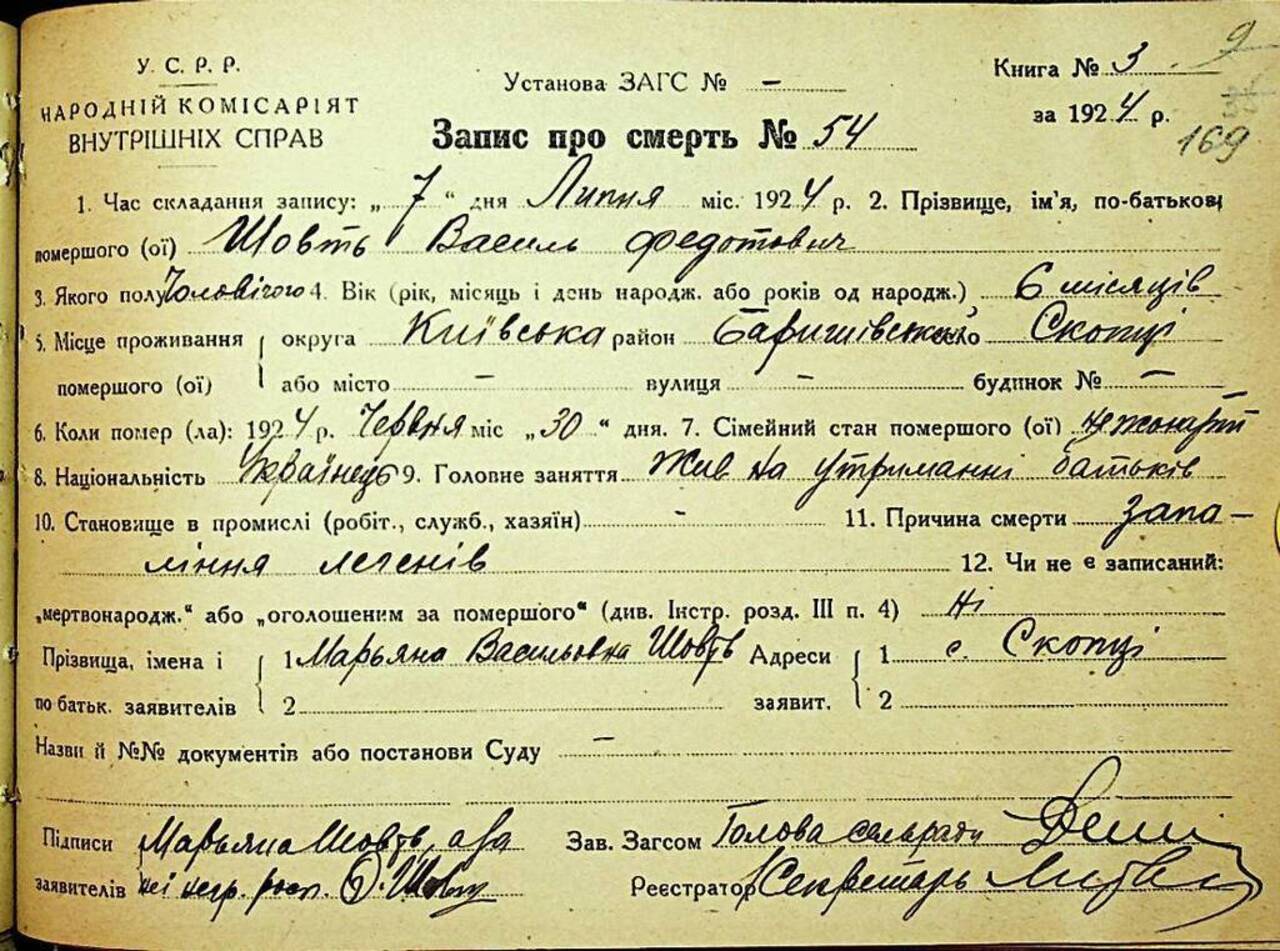 У. С. Р. Р.
НАРОДНІЙ КОМІСАРІЯТ
ВНУТРІШНІХ СПРАВ
Установа ЗАГС № –
Запис про смерть № 54
Книга № 3
за 1924 р.
9
169
1. Час складання запису: „ 7 “ дня Липня міс. 1924 р. 2. Прізвище, ім'я, по-батькові
помершого (ої) Шовть Василь Федотович
3. Якого полу Чоловічого 4. Вік (рік, місяць і день народж. або років од народж.) 6 місяців
5. Місце проживання округа Київська район Баришівський село Скопці
помершого (ої) або місто – вулиця – будинок № –
6. Коли помер (ла): 1924 р. Червня міс „30“ дня. 7. Сімейний стан помершого (ої) нежонатий
8. Національність Українець 9. Головне заняття Жив на утриманні батьків
10. Становище в промислі (робіт., служб., хазяїн) - 11. Причина смерти запа–
ління легенів 12. Чи не є записаний:
„мертвонародж.“ або „оголошеним за помершого“ (див. Інстр. розд. III п. 4) Ні
Прізвища, імена і 1 Марьяна Васильовна Шовть Адреси 1 с. Скопці
по батьк. заявителів 2 заявит. 2
Назви й №№ документів або постанови Суду –
Підписи Марьяна Шовть, а за Зав. Загсом Голова сельради
заявителів неї негр. росп. Шовть Реєстратор Секретарь